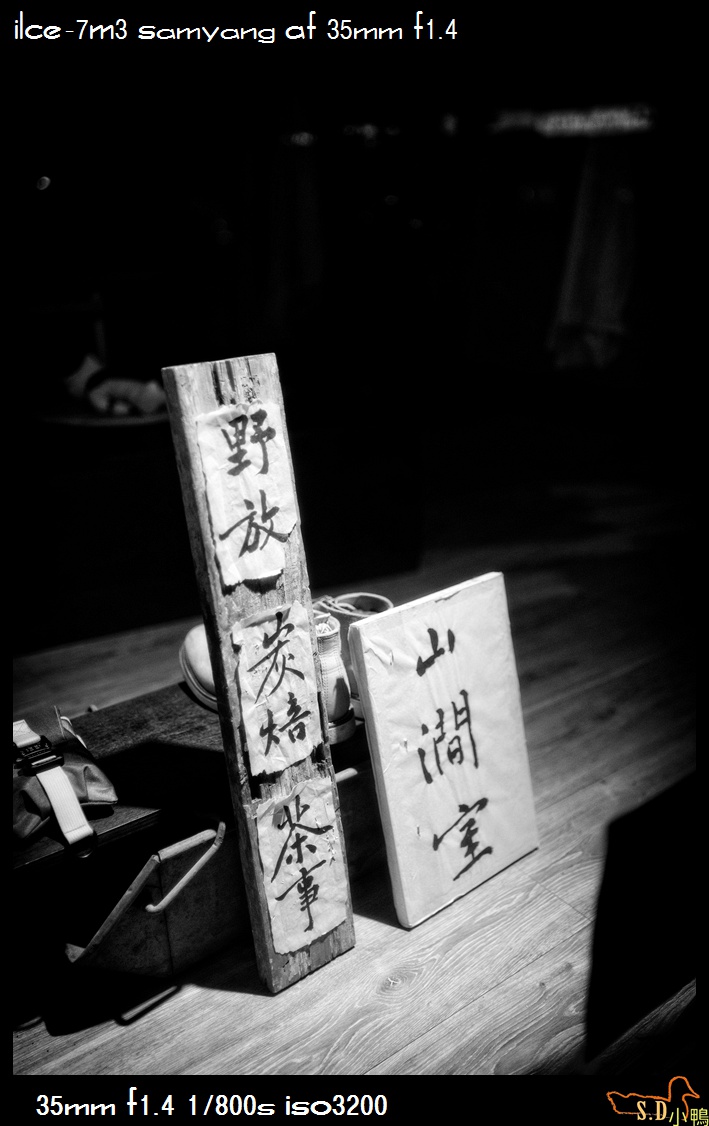 ilce-7m3 samyang af 35mm f1.4
野放
炭焙
茶事
山澗室
35mm f1.4 1/800s iso3200
S.D小鴨